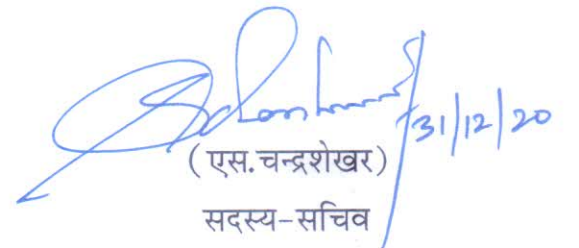 31/12/20
( एस. चन्द्रशेखर )
सदस्य-सचिव